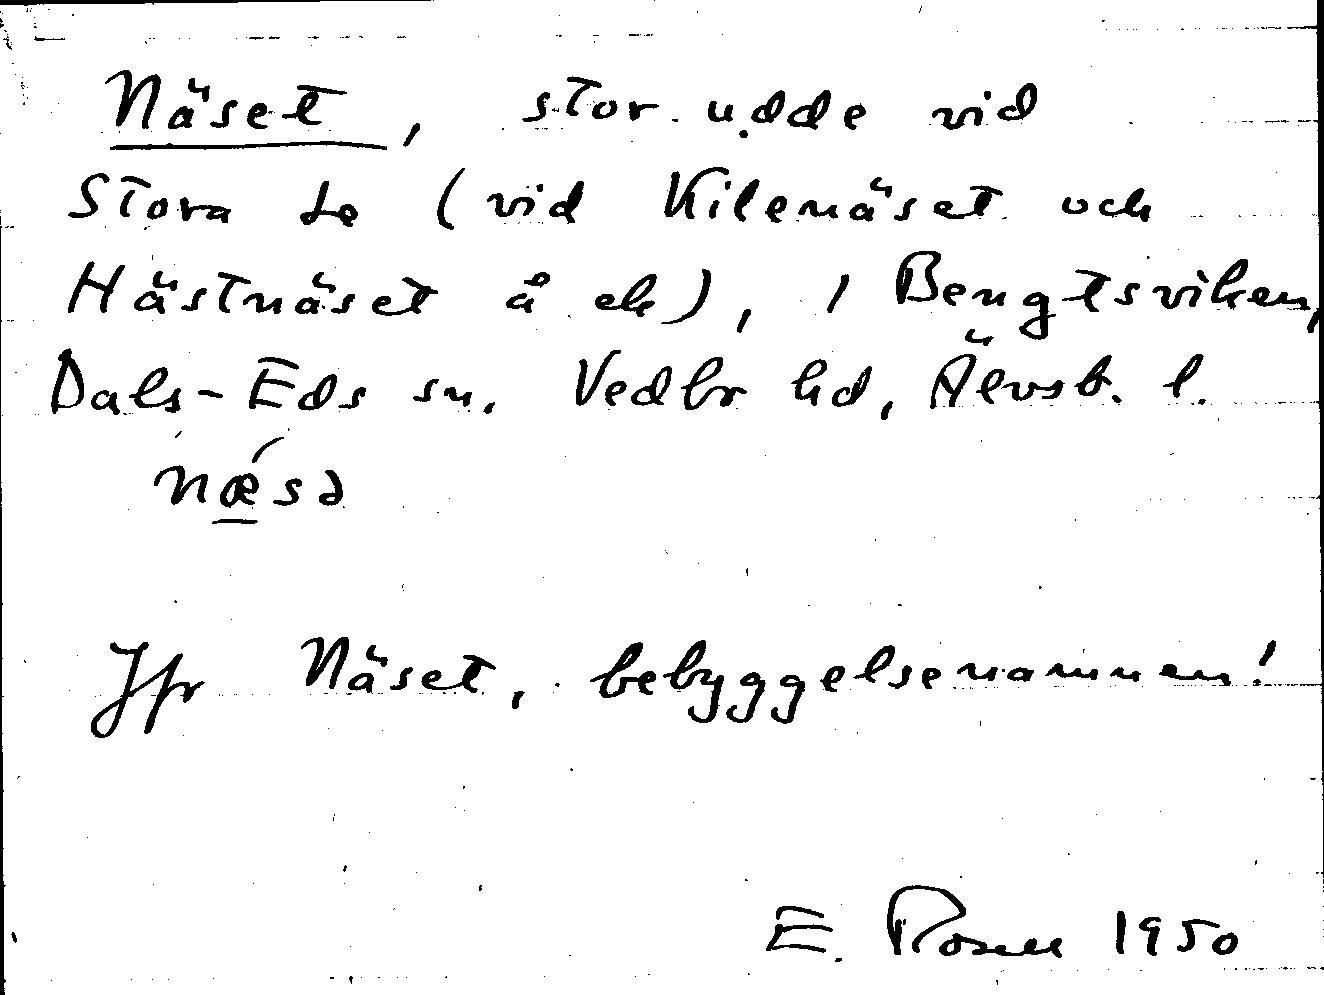 Näset, stor udde vid
Stora Le (vid Kilenäset och
Hästnäset å ek), / Bengtsviken,
Dals-Eds sn. Vedbo hd, Älvsb. l.
nǽsə
Jfr Näset, bebyggelsenamnen!
E. Rosell 1950